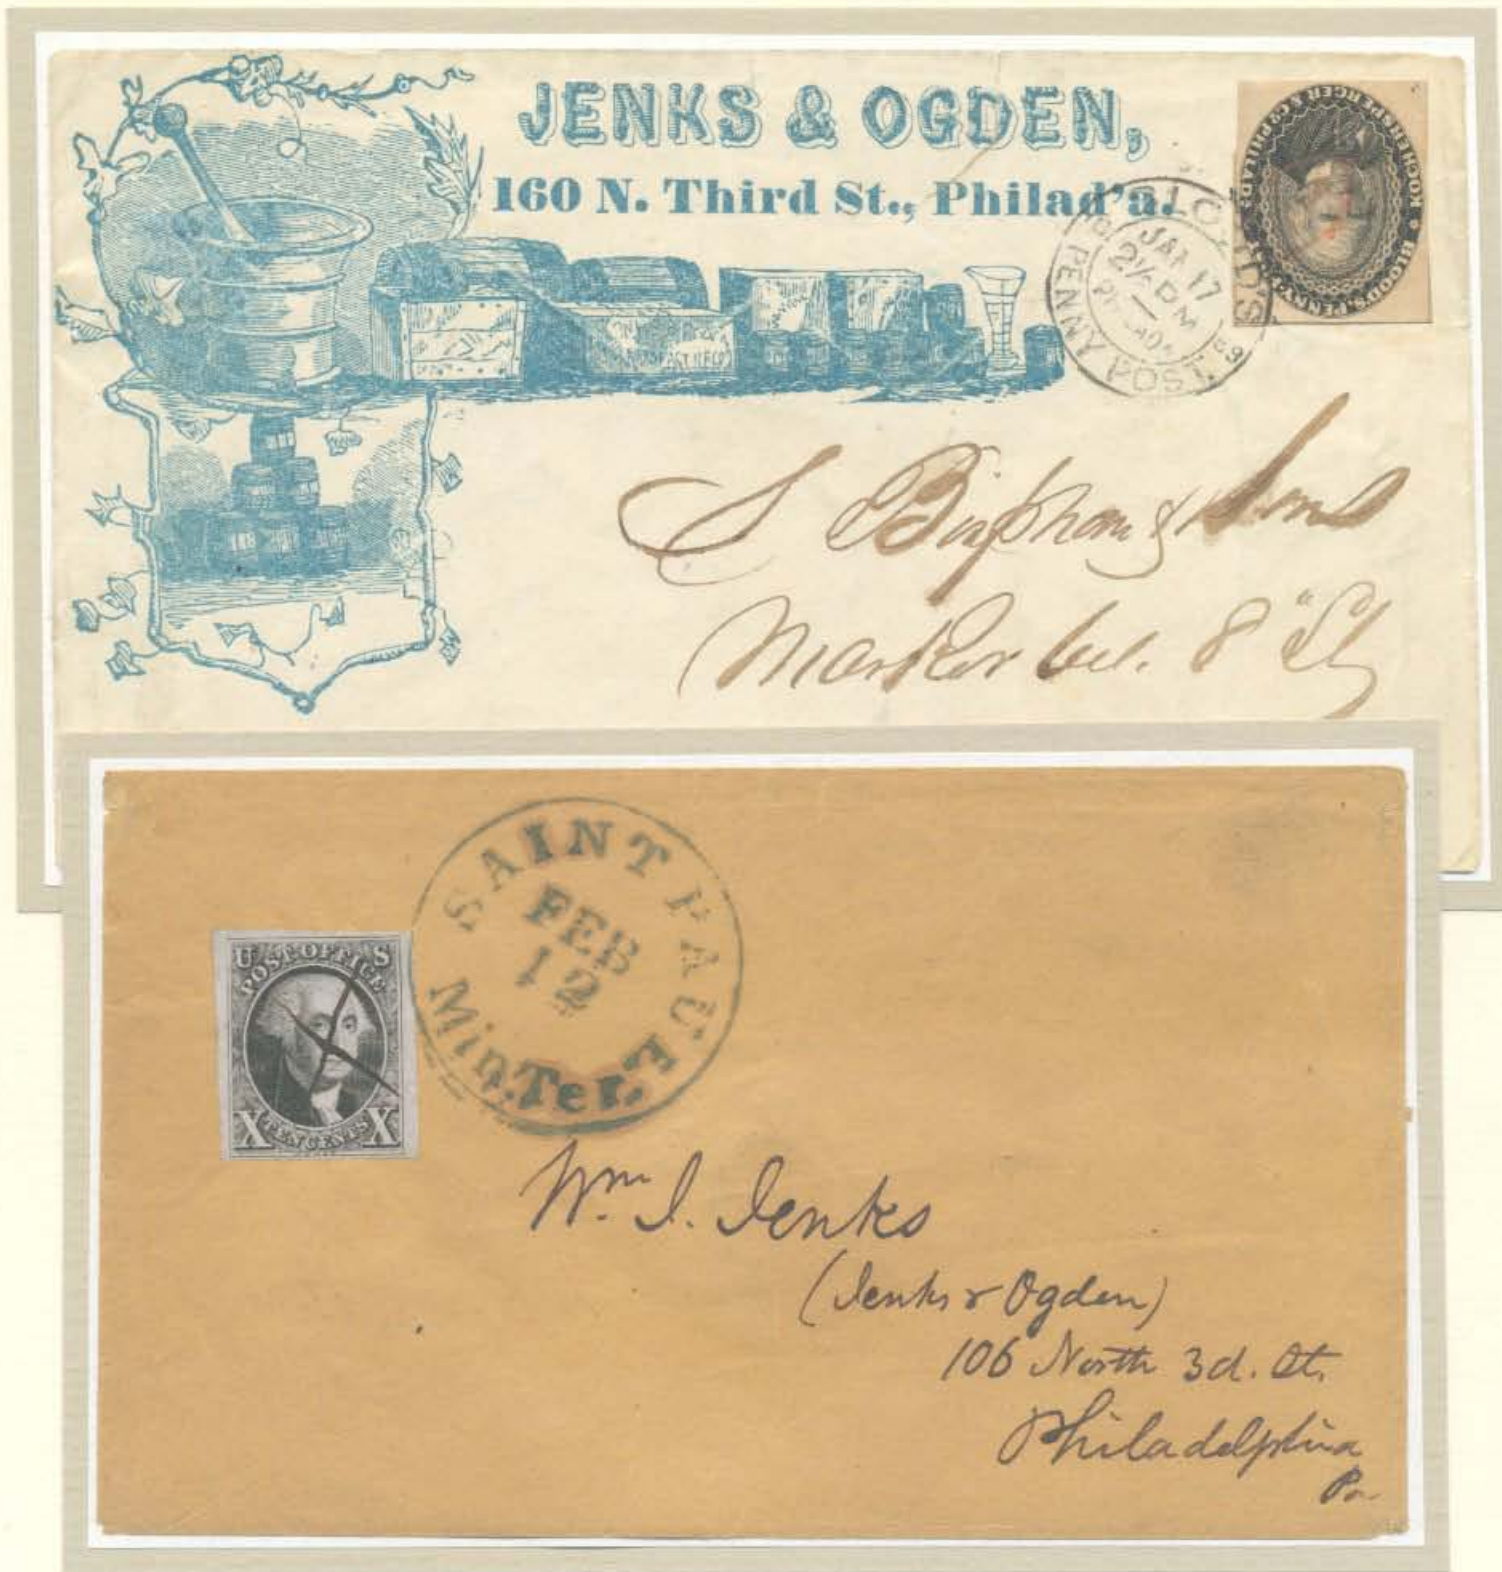 JENKS & OGDEN,
160 N. Third St., Philad'a.
BLOOD'S PENNY POST
KOCHERSPERGER & CO. PHILADA.
BLOOD'S
PENNY POST.
JAN 17
2½ PM
PHILADA
S Bispham & Sons
Market bel. 8" St
SAINT PAUL
FEB
12
Min. Ter.
U S
POST OFFICE
X TEN CENTS X
Wm. J. Jenks
(Jenks & Ogden)
106 North 3d. St.
Philadelphia
Pa